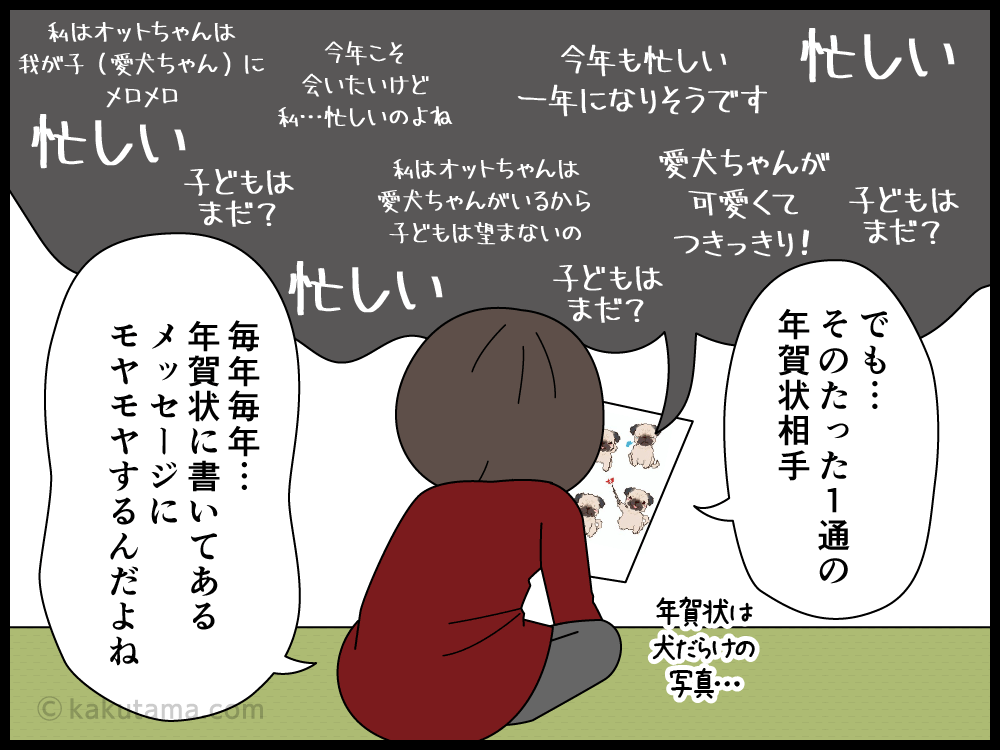 私はオットちゃんは
我が子（愛犬ちゃん）に
メロメロ
今年こそ
会いたいけど
私…忙しいのよね
今年も忙しい
一年になりそうです
忙しい
忙しい
子どもは
まだ？
私はオットちゃんは
愛犬ちゃんがいるから
子どもは望まないの
愛犬ちゃんが
可愛くて
つきっきり！
子どもは
まだ？
忙しい
子どもは
まだ？
でも…
そのたった１通の
年賀状相手
毎年毎年…
年賀状に書いてある
メッセージに
モヤモヤするんだよね
年賀状は
犬だらけの
写真…
© kakutama.com